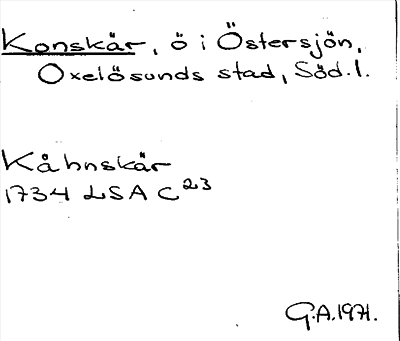 Konskär, ö i Östersjön,
Oxelösunds stad, Söd.l.
Kåhnskär
1734 LSA C23
G.A. 1971.